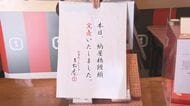 本日、納屋橋饅頭
完売いたしました。